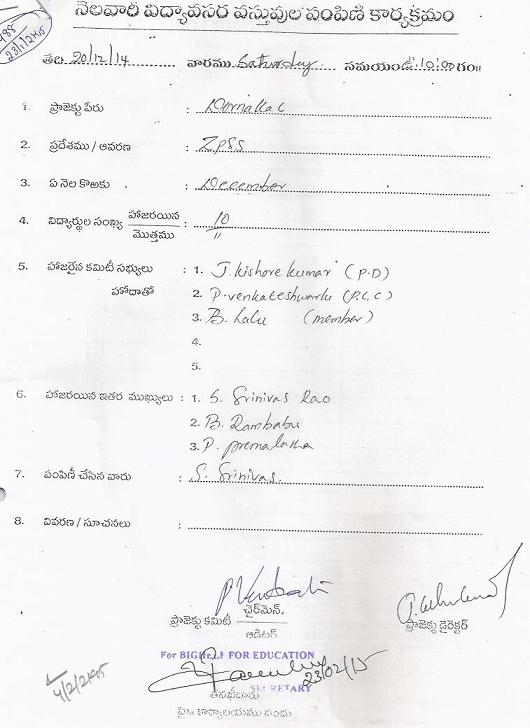 నెలవారి విద్యావసర వస్తువుల పంపిణి కార్యక్రమం
23/1/2015
తేది 20/12/14 వారము Saturday సమయం 10:00 గం॥
1. ప్రాజెక్టు పేరు : Dornakal
2. ప్రదేశము / ఆవరణ : ZPSS
3. ఏ నెల కొఱకు : December
4. విద్యార్థుల సంఖ్య హాజరయిన / మొత్తము : 10 / 11
5. హాజరైన కమిటీ సభ్యులు : 1. J. Kishore Kumar (P.D)
హోదాతో 2. P. Venkateshwarlu (P.C.C)
3. B. Lalu (member)
4.
5.
6. హాజరయిన ఇతర ముఖ్యులు : 1. S. Srinivas Rao
2. B. Rambabu
3. P. Premalatha
7. పంపిణీ చేసిన వారు : S. Srinivas.
8. వివరణ / సూచనలు :
ప్రాజెక్టు కమిటీ చైర్‌మెన్. ప్రాజెక్టు డైరెక్టర్
ఆడిటర్
For BIGHELP FOR EDUCATION
23/02/15
SECRETARY
4/2/2015
తనఖీదారు
హై॥ కార్యాలయము నందు